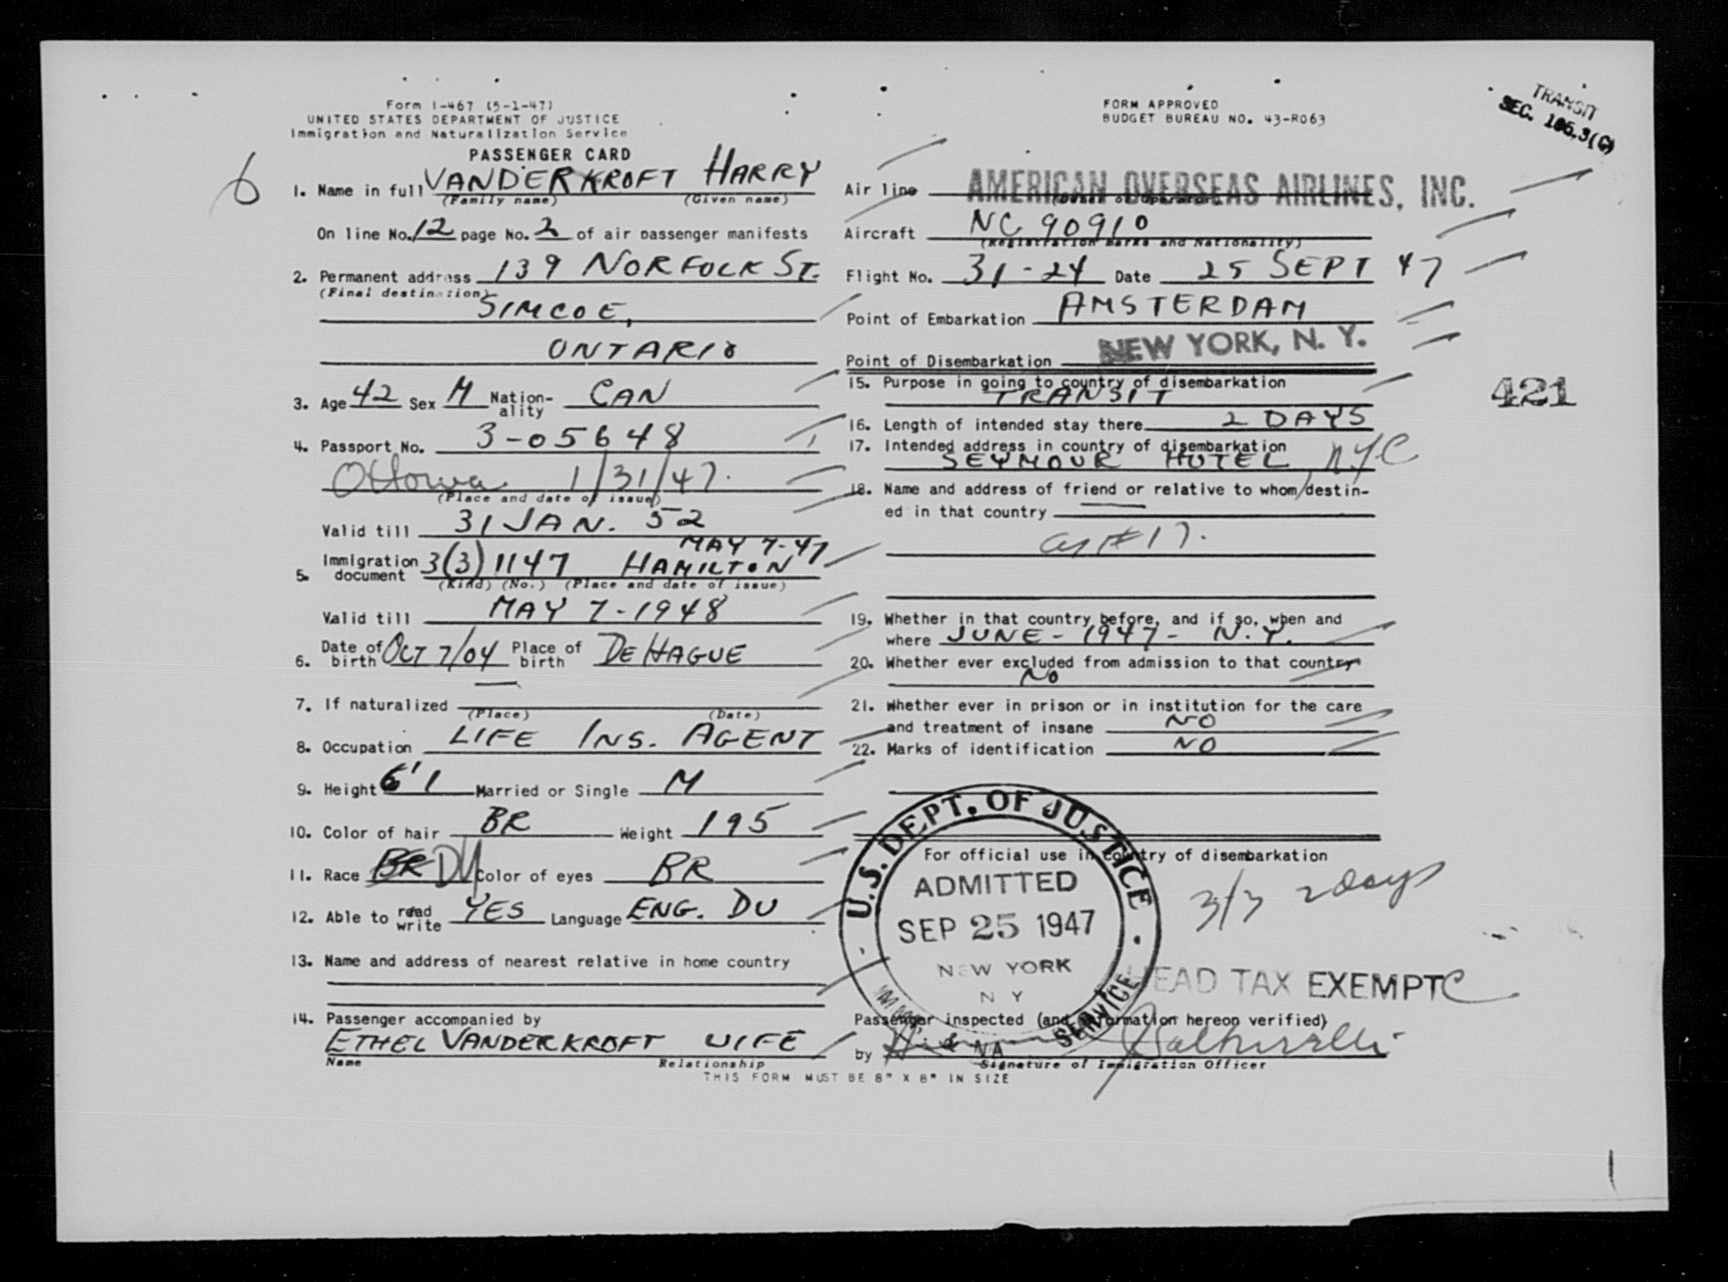 Form I-467 (5-1-47)
UNITED STATES DEPARTMENT OF JUSTICE
Immigration and Naturalization Service
PASSENGER CARD
6
1. Name in full VANDERKROFT HARRY
(Family name) (Given name)
On line No. 12 page No. 2 of air passenger manifests
2. Permanent address 139 NORFOLK ST.
(Final destination)
SIMCOE,
ONTARIO
3. Age 42 Sex M Nationality CAN
4. Passport No. 3-05648
Ottowa 1/31/47.
(Place and date of issue)
Valid till 31 JAN. 52
MAY 7-47
5. Immigration document 3(3) 1147 HAMILTON
(Kind) (No.) (Place and date of issue)
Valid till MAY 7-1948
6. Date of birth OCT 7/04 Place of birth DE HAGUE
7. If naturalized —
(Place) (Date)
8. Occupation LIFE INS. AGENT
9. Height 6'1 Married or Single M
10. Color of hair BR Weight 195
11. Race BR DU Color of eyes BR
12. Able to read write YES Language ENG. DU
13. Name and address of nearest relative in home country
14. Passenger accompanied by
ETHEL VANDERKROFT WIFE
Name Relationship
THIS FORM MUST BE 8" X 8" IN SIZE
FORM APPROVED
BUDGET BUREAU NO. 43-R063
TRANSIT
SEC. 105.3(G)
Air line AMERICAN OVERSEAS AIRLINES, INC.
(Owner or Operator)
Aircraft NC 90910
(Registration marks and Nationality)
Flight No. 31-24 Date 25 SEPT 47
Point of Embarkation AMSTERDAM
Point of Disembarkation NEW YORK, N. Y.
15. Purpose in going to country of disembarkation
TRANSIT
421
16. Length of intended stay there 2 DAYS
17. Intended address in country of disembarkation
SEYMOUR HOTEL NYC
18. Name and address of friend or relative to whom destin-
ed in that country —
#17.
19. Whether in that country before, and if so, when and
where JUNE - 1947 - N.Y.
20. Whether ever excluded from admission to that country
No
21. Whether ever in prison or in institution for the care
and treatment of insane NO
22. Marks of identification NO
For official use in country of disembarkation
U.S. DEPT. OF JUSTICE
ADMITTED
SEP 25 1947
NEW YORK
N Y
SERVICE
3/3 2 days
HEAD TAX EXEMPT
Passenger inspected (and information hereon verified)
by
Signature of Immigration Officer